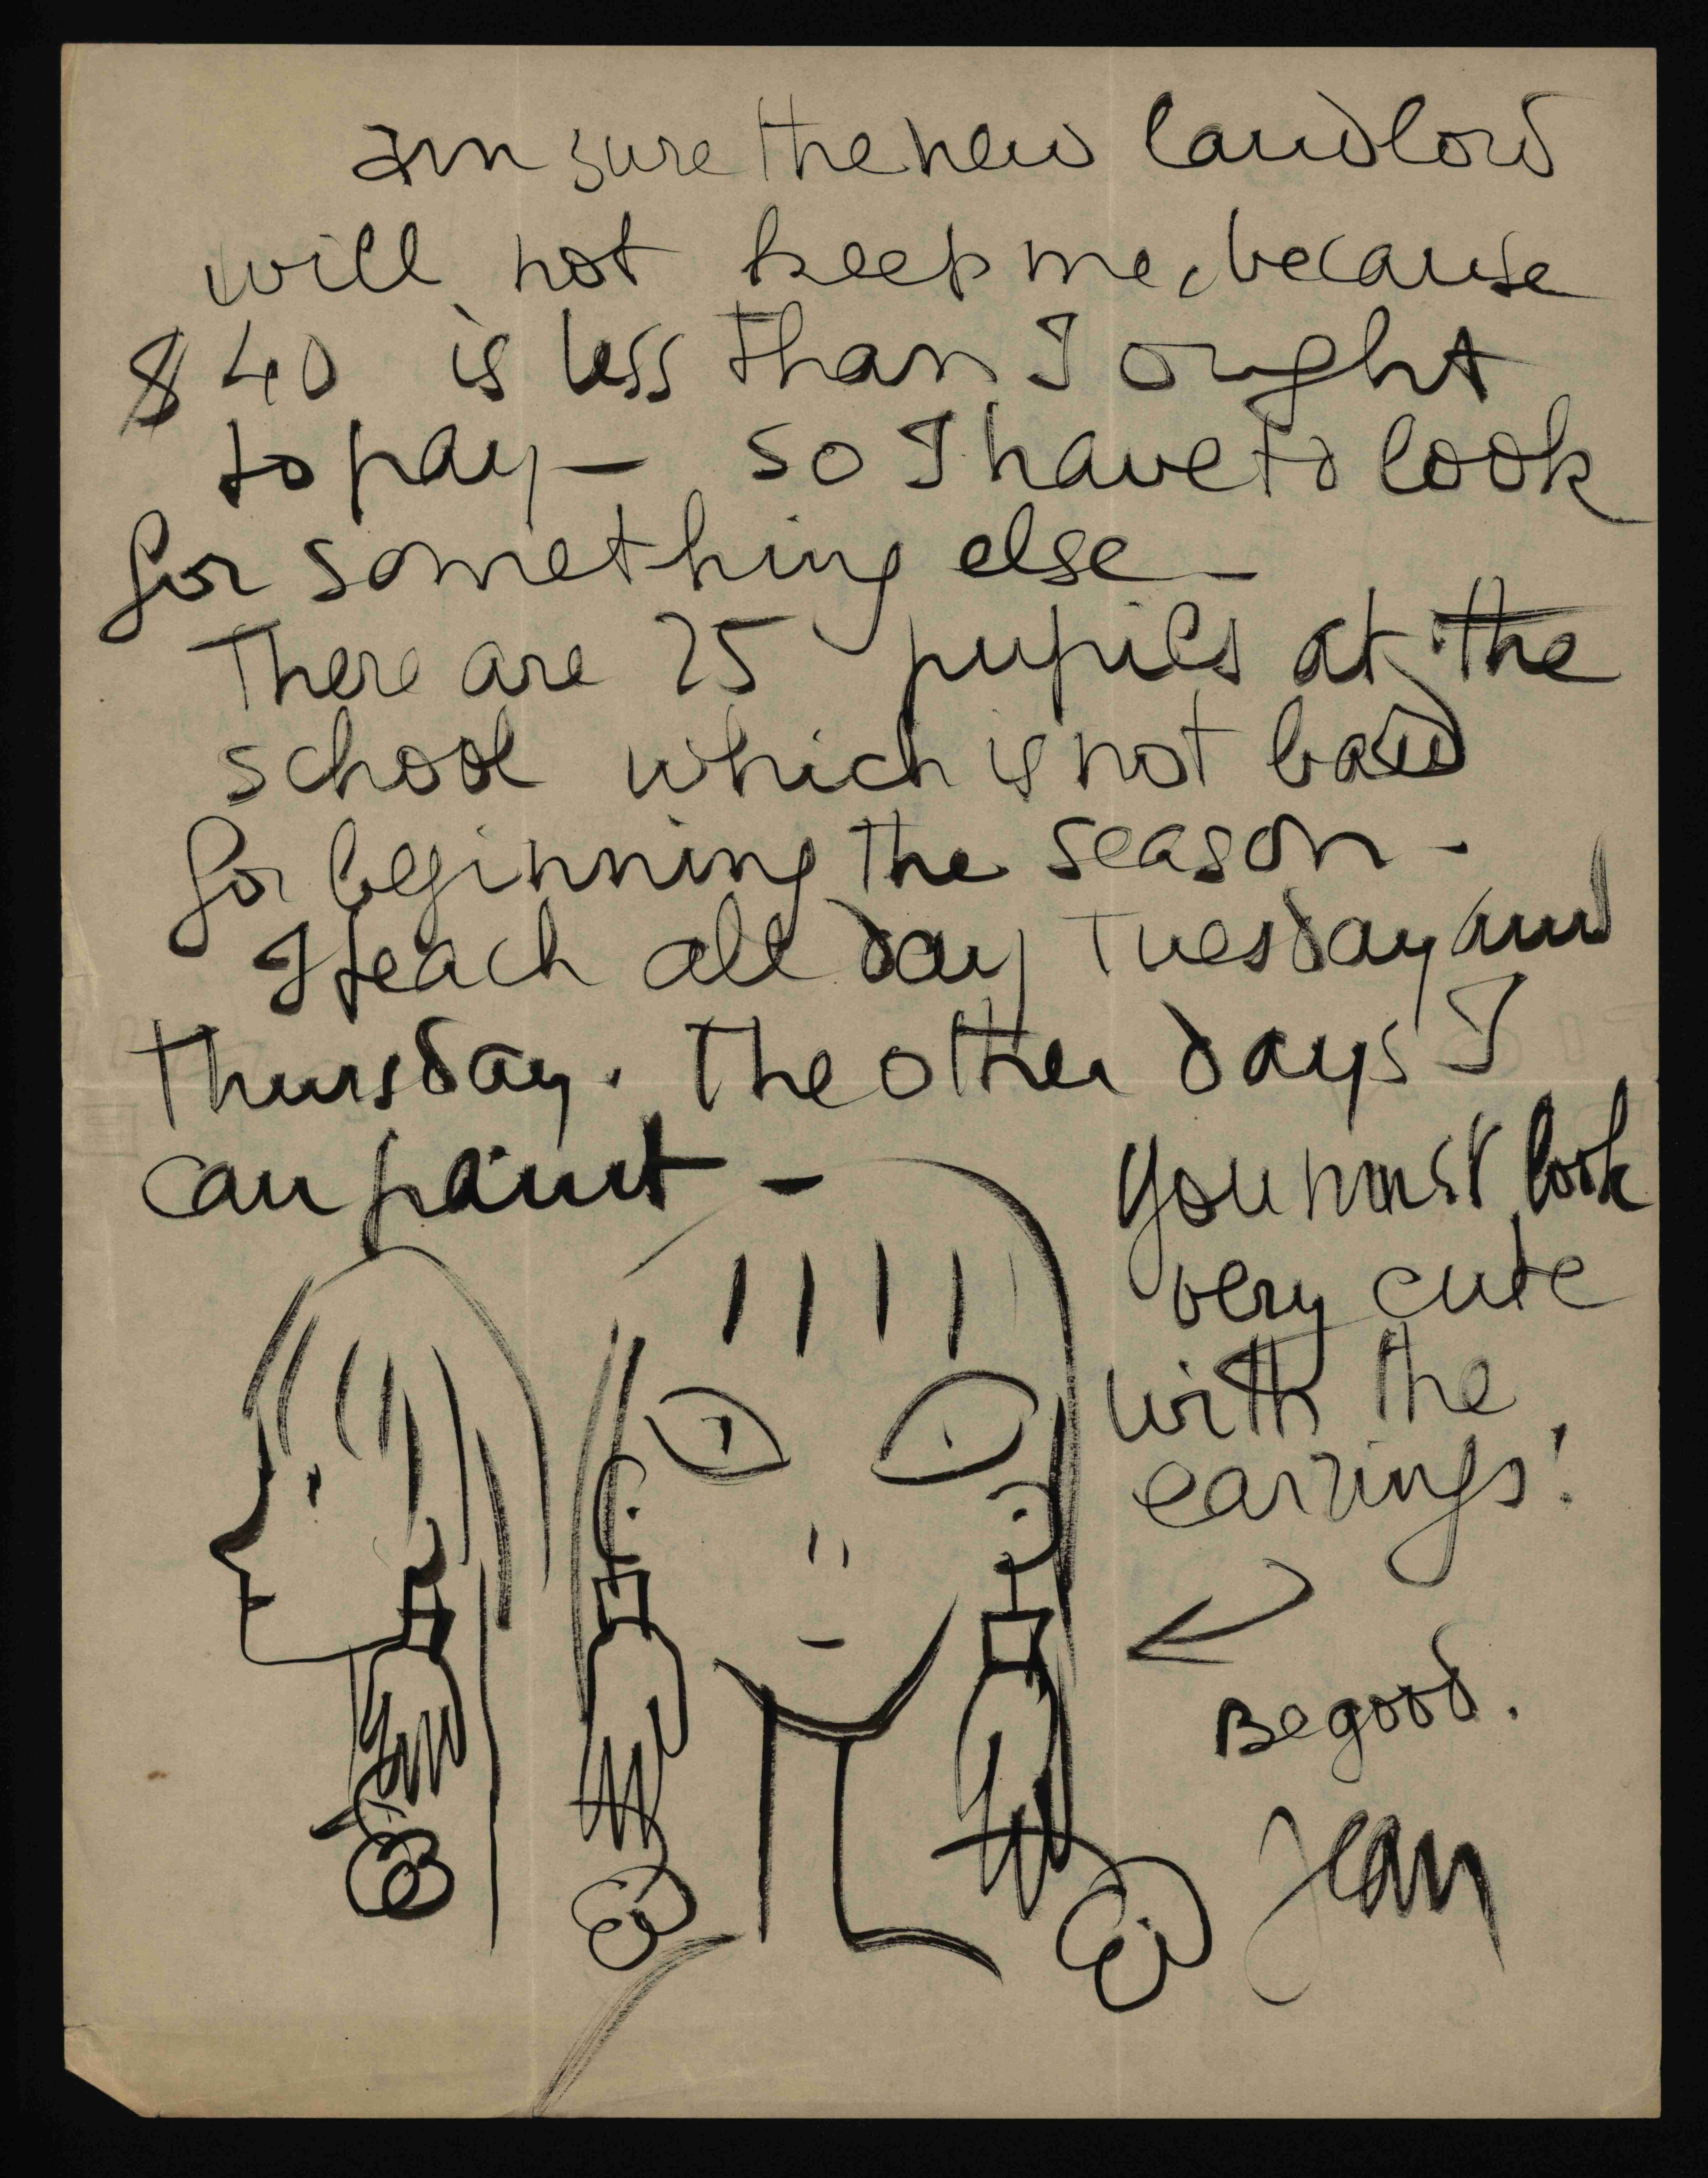 am sure the new landlord
will not keep me, because
$40 is less than I ought
to pay — so I have to look
for something else —
There are 25 pupils at the
school which is not bad
for beginning the season -
I teach all day Tuesday and
Thursday. The other days I
can paint —
you must look
very cute
with the
earrings!
Be good.
Jean